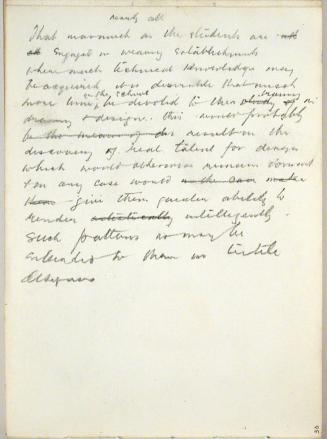 nearly all
That inasmuch as the students are
engaged in weaving establishments
where much technical knowledge may
be acquired it is desirable that much
in the school
more time be devoted to their study of in
drawing
drawing & design. this would probably
be the means of result in the
discovery of real talent for design
which would otherwise remain dormant
& in any case would
give them greater ability to
render artistically intelligently
such patterns as may be
submitted to them in textile
designs
30